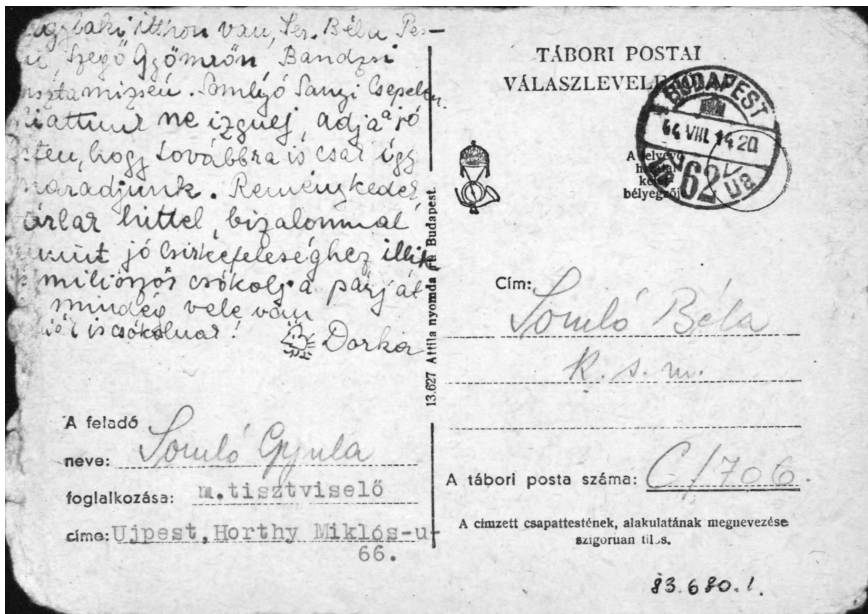 itthon van, Ser. Béla
Szegő Gyömrőn, Bandzsi
Somlyó Sanyi Csepelen.
ne izgulj, adja a jó
hogy továbbra is csak így
maradjunk. Reménykedek
hittel, bizalommal
mint jó csirkefeleséghez illik
milliószor csókolja párját
mindég vele van
is csókolnak!
Dorka
A feladó
neve: Somló Gyula
foglalkozása: m.tisztviselő
címe: Ujpest, Horthy Miklós-u-
66.
13.627 Attila nyomda Budapest.
TÁBORI POSTAI
VÁLASZLEVELE
BUDAPEST
44 VIII. 14 20
62
A felvevő
bélyegzője
Cím:
Somló Béla
K. s. m.
A tábori posta száma: C/706.
A címzett csapattestének, alakulatának megnevezése
szigoruan tilos.
83.680.1.